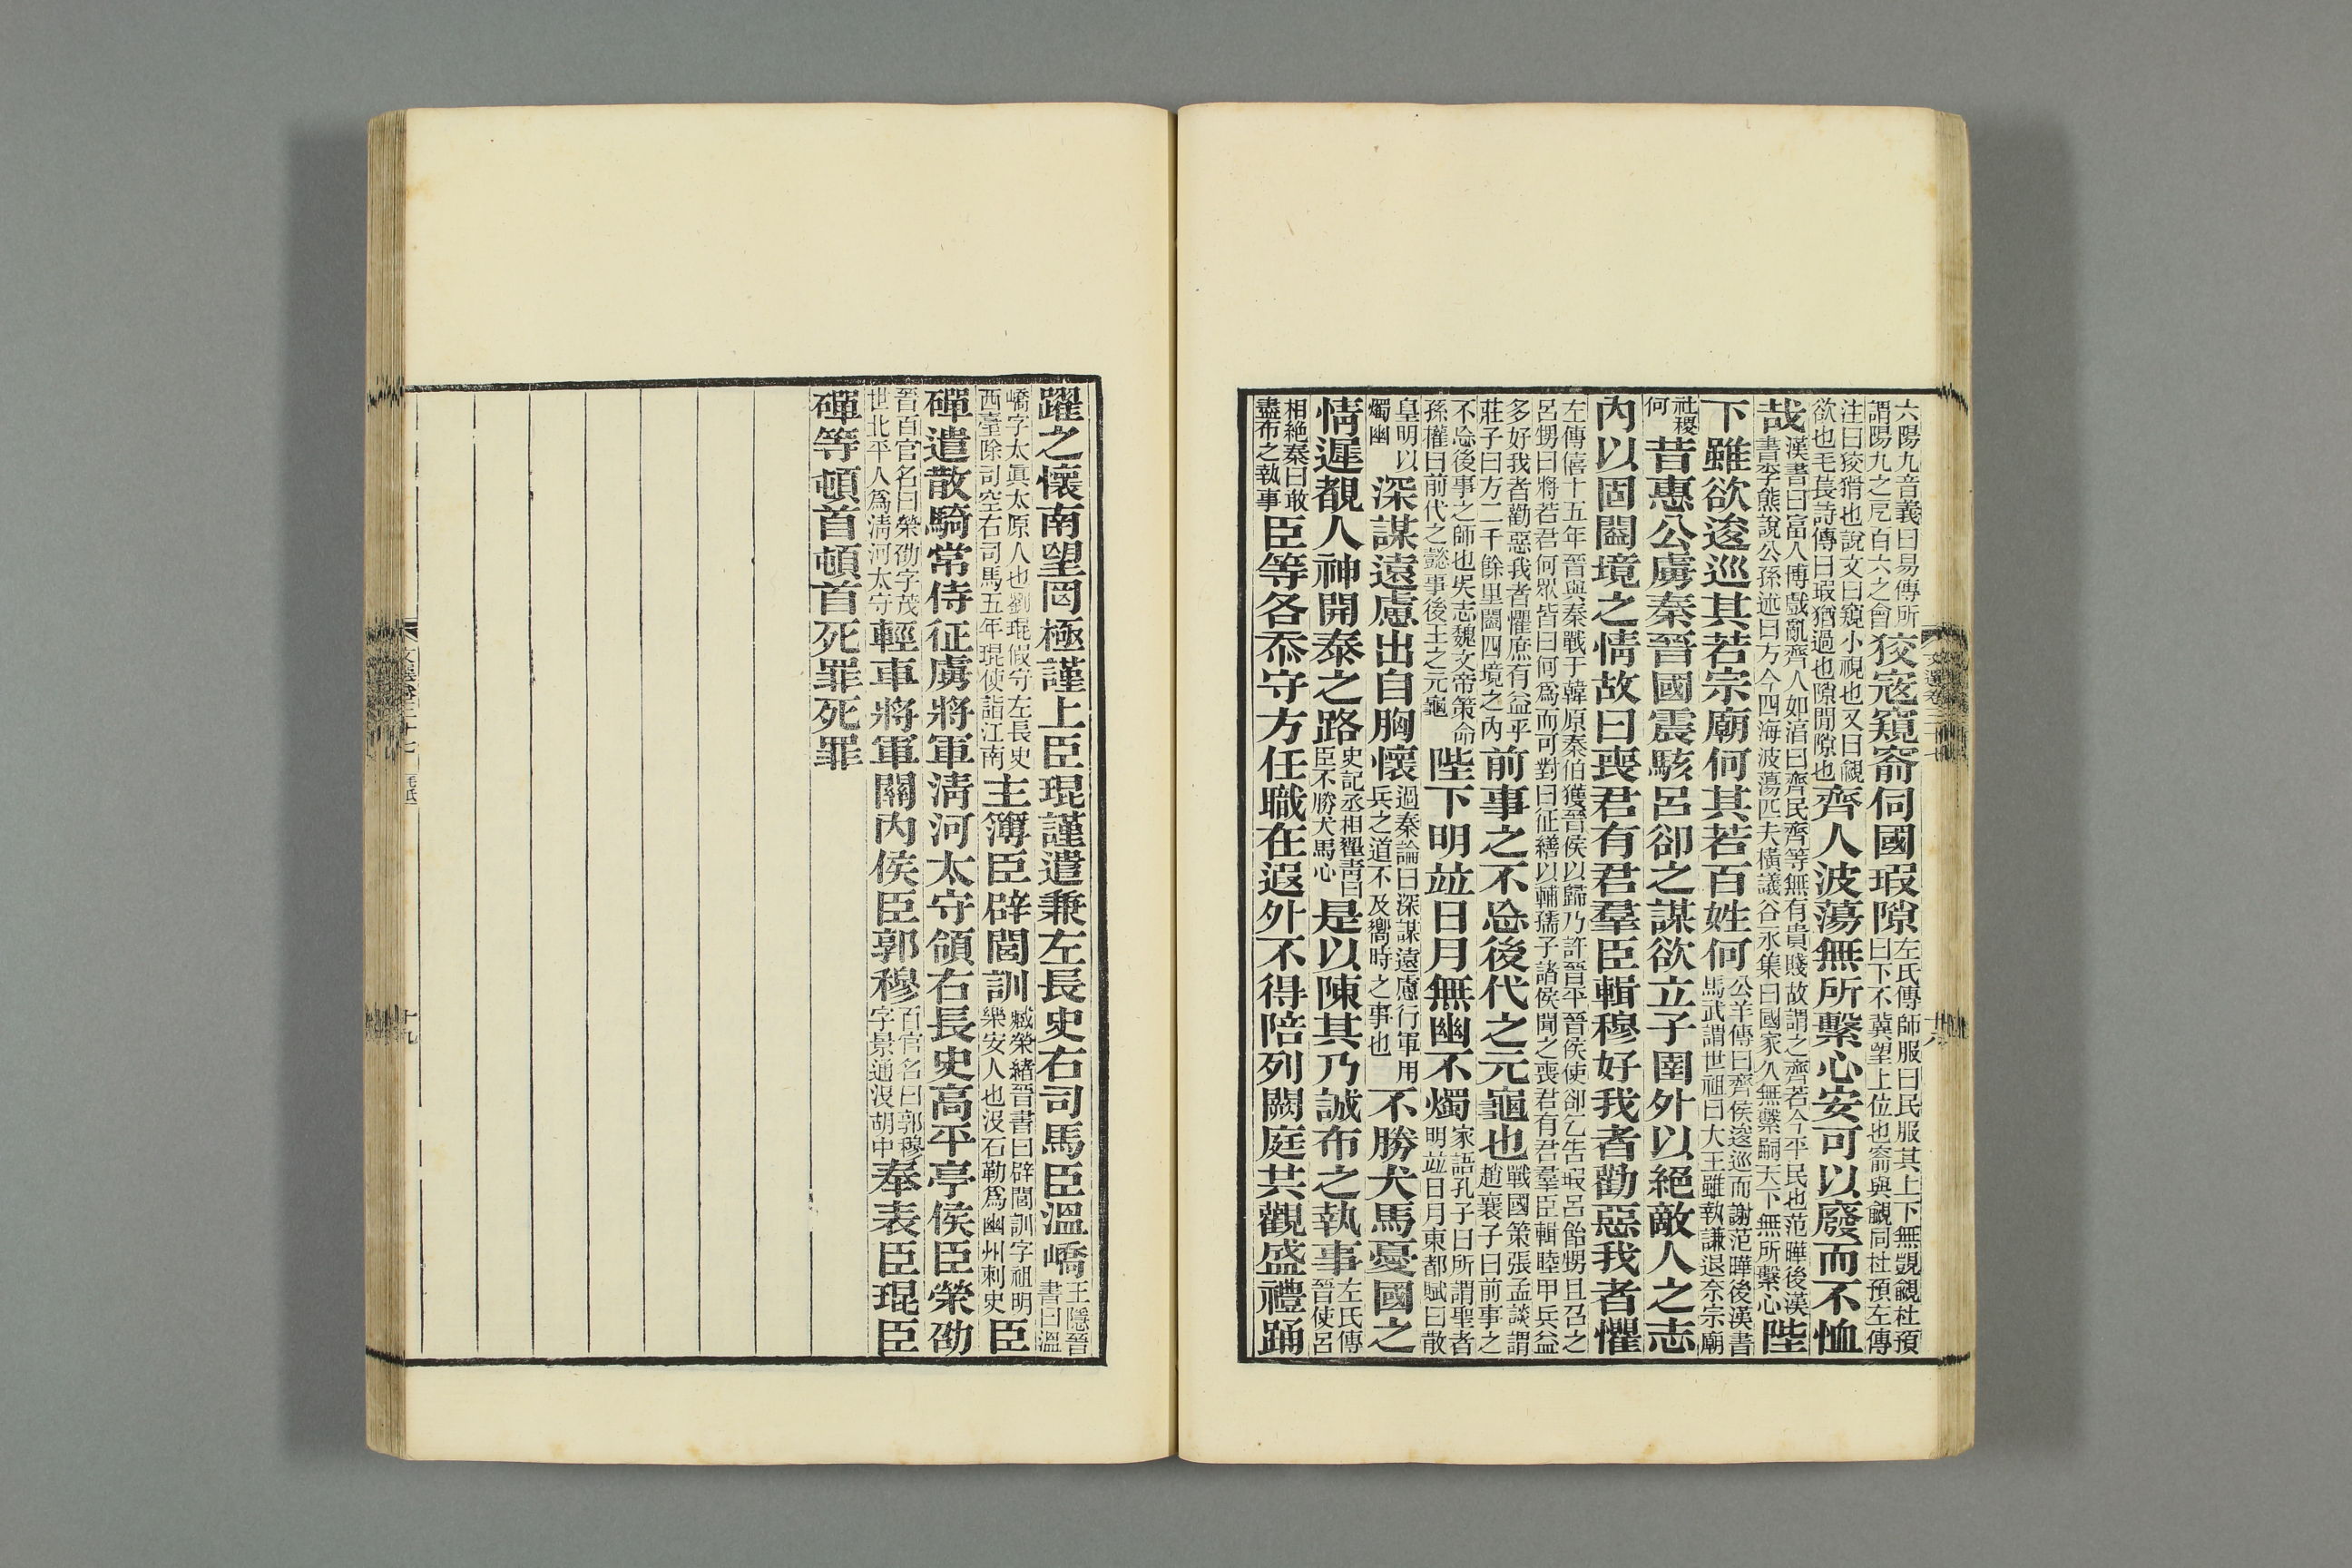 六陽九音義曰易傳所謂陽九之戹百六之會狡寇窺窬伺國瑕隙左氏傳師服曰民服其上下無覬覦杜預曰下不冀望上位也窬與覦同杜預左傳
注曰狡猾也說文曰窺小視也又曰覦欲也毛萇詩傳曰瑕猶過也隙閒隙也齊人波蕩無所繫心安可以廢而不恤
哉漢書曰富人傅戲亂齊人如淳曰齊民齊等無有貴賤故謂之齊若今平民也范曄後漢書李熊說公孫述曰方今四海波蕩匹夫橫議谷永集曰國家久無繫嗣天下無所繫心陛
下雖欲逡巡其若宗廟何其若百姓何公羊傳曰齊侯逡巡而謝范曄後漢書馬武謂世祖曰大王雖執謙退柰宗廟
社稷何昔惠公虜秦晉國震駭呂卻之謀欲立子圉外以絕敵人之志
內以固闔境之情故曰喪君有君羣臣輯穆好我者勸惡我者懼
左傳僖十五年晉與秦戰于韓原秦伯獲晉侯以歸乃許晉平晉侯使卻乞告瑕呂飴甥且召之呂甥曰將若君何眾皆曰何爲而可對曰征繕以輔孺子諸侯聞之喪君有君羣臣輯睦甲兵益
多好我者勸惡我者懼庶有益乎莊子曰方二千餘里闔四境之內前事之不忘後代之元龜也戰國策張孟談謂趙襄子曰前事之
不忘後事之師也吳志魏文帝策命孫權曰前代之懿事後王之元龜陛下明竝日月無幽不燭家語孔子曰所謂聖者明竝日月東都賦曰散
皇明以燭幽深謀遠慮出自胸懷過秦論曰深謀遠慮行軍用兵之道不及嚮時之事也不勝犬馬憂國之
情遲覩人神開泰之路史記丞相翟青曰臣不勝犬馬心是以陳其乃誠布之執事左氏傳晉使呂
相絕秦曰敢盡布之執事臣等各忝守方任職在遐外不得陪列闕庭共觀盛禮踊
躍之懷南望罔極謹上臣琨謹遣兼左長史右司馬臣溫嶠王隱晉書曰溫
嶠字太眞太原人也劉琨假守左長史西臺除司空右司馬五年琨使詣江南主簿臣辟閭訓臧榮緒晉書曰辟閭訓字祖明樂安人也沒石勒爲幽州刺史臣
磾遣散騎常侍征虜將軍淸河太守領右長史高平亭侯臣榮劭
晉百官名曰榮劭字茂世北平人爲淸河太守輕車將軍關內侯臣郭穆百官名曰郭穆字景通沒胡中奉表臣琨臣
磾等頓首頓首死罪死罪